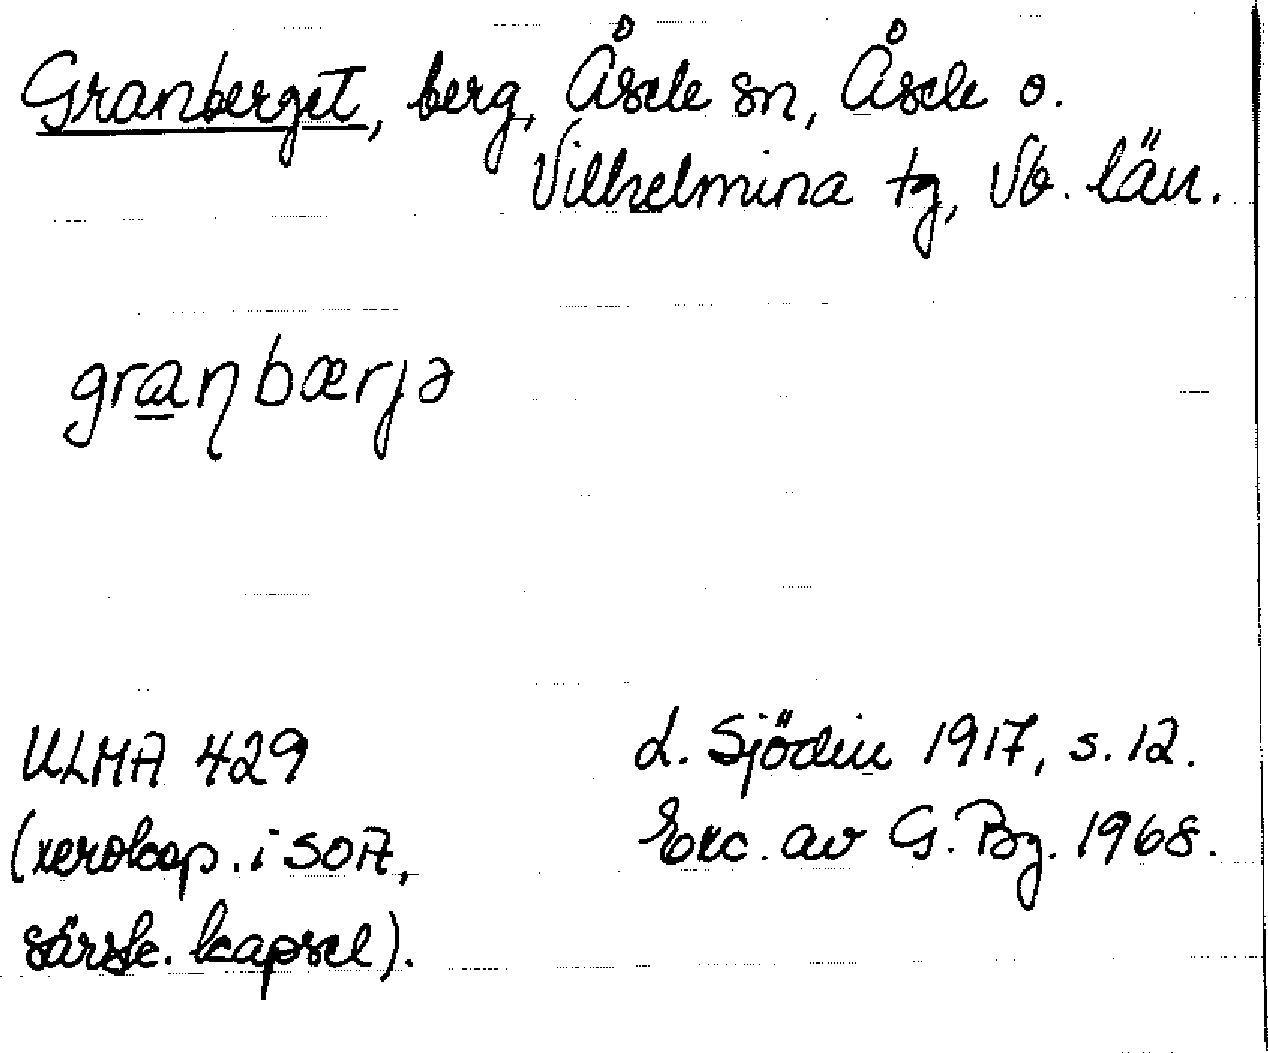 Granberget, berg, Åsele sn, Åsele o.
Vilhelmina tg, Vb. län.
granbærjə
ULMA 429
(xerokop. i SOA,
särsk. kapsel).
L. Sjödin 1917, s. 12.
Exc. av G. Bg. 1968.